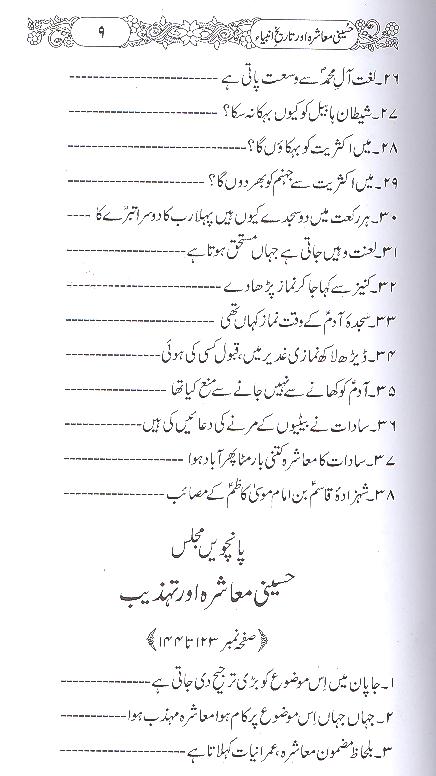 حسینی معاشرہ اور تاریخ انبیاء
۹
۲۶۔ لغت آلِ محمدؐ سے وسعت پاتی ہے
۲۷۔ شیطان ہابیل کو کیوں بہکا نہ سکا؟
۲۸۔ میں اکثریت کو بہکاؤں گا؟
۲۹۔ میں اکثریت سے جہنم کو بھر دوں گا؟
۳۰۔ ہر رکعت میں دو سجدے کیوں ہیں پہلا رب کا دوسرا تبرّے کا
۳۱۔ لعنت وہیں جاتی ہے جہاں مستحق ہوتا ہے
۳۲۔ کنیز سے کہا جا کر نماز پڑھا دے
۳۳۔ سجدۂ آدمؑ کے وقت نماز کہاں تھی
۳۴۔ ڈیڑھ لاکھ نمازی غدیر میں، قبول کسی کی ہوئی
۳۵۔ آدمؑ کو کھانے سے نہیں جانے سے منع کیا تھا
۳۶۔ سادات نے بیٹیوں کے مرنے کی دعائیں کی ہیں
۳۷۔ سادات کا معاشرہ کتنی بار مٹا پھر آباد ہوا
۳۸۔ شہزادۂ قاسمؑ بن امام موسیٰ کاظمؑ کے مصائب
پانچویں مجلس
حسینی معاشرہ اور تہذیب
﴿صفحہ نمبر ۱۲۳ تا ۱۴۴﴾
۱۔ جاپان میں اِس موضوع کو بڑی ترجیح دی جاتی ہے
۲۔ جہاں جہاں اِس موضوع پر کام ہوا معاشرہ مہذب ہوا
۳۔ بلحاظ مضمون معاشرہ، عمرانیات کہلاتا ہے